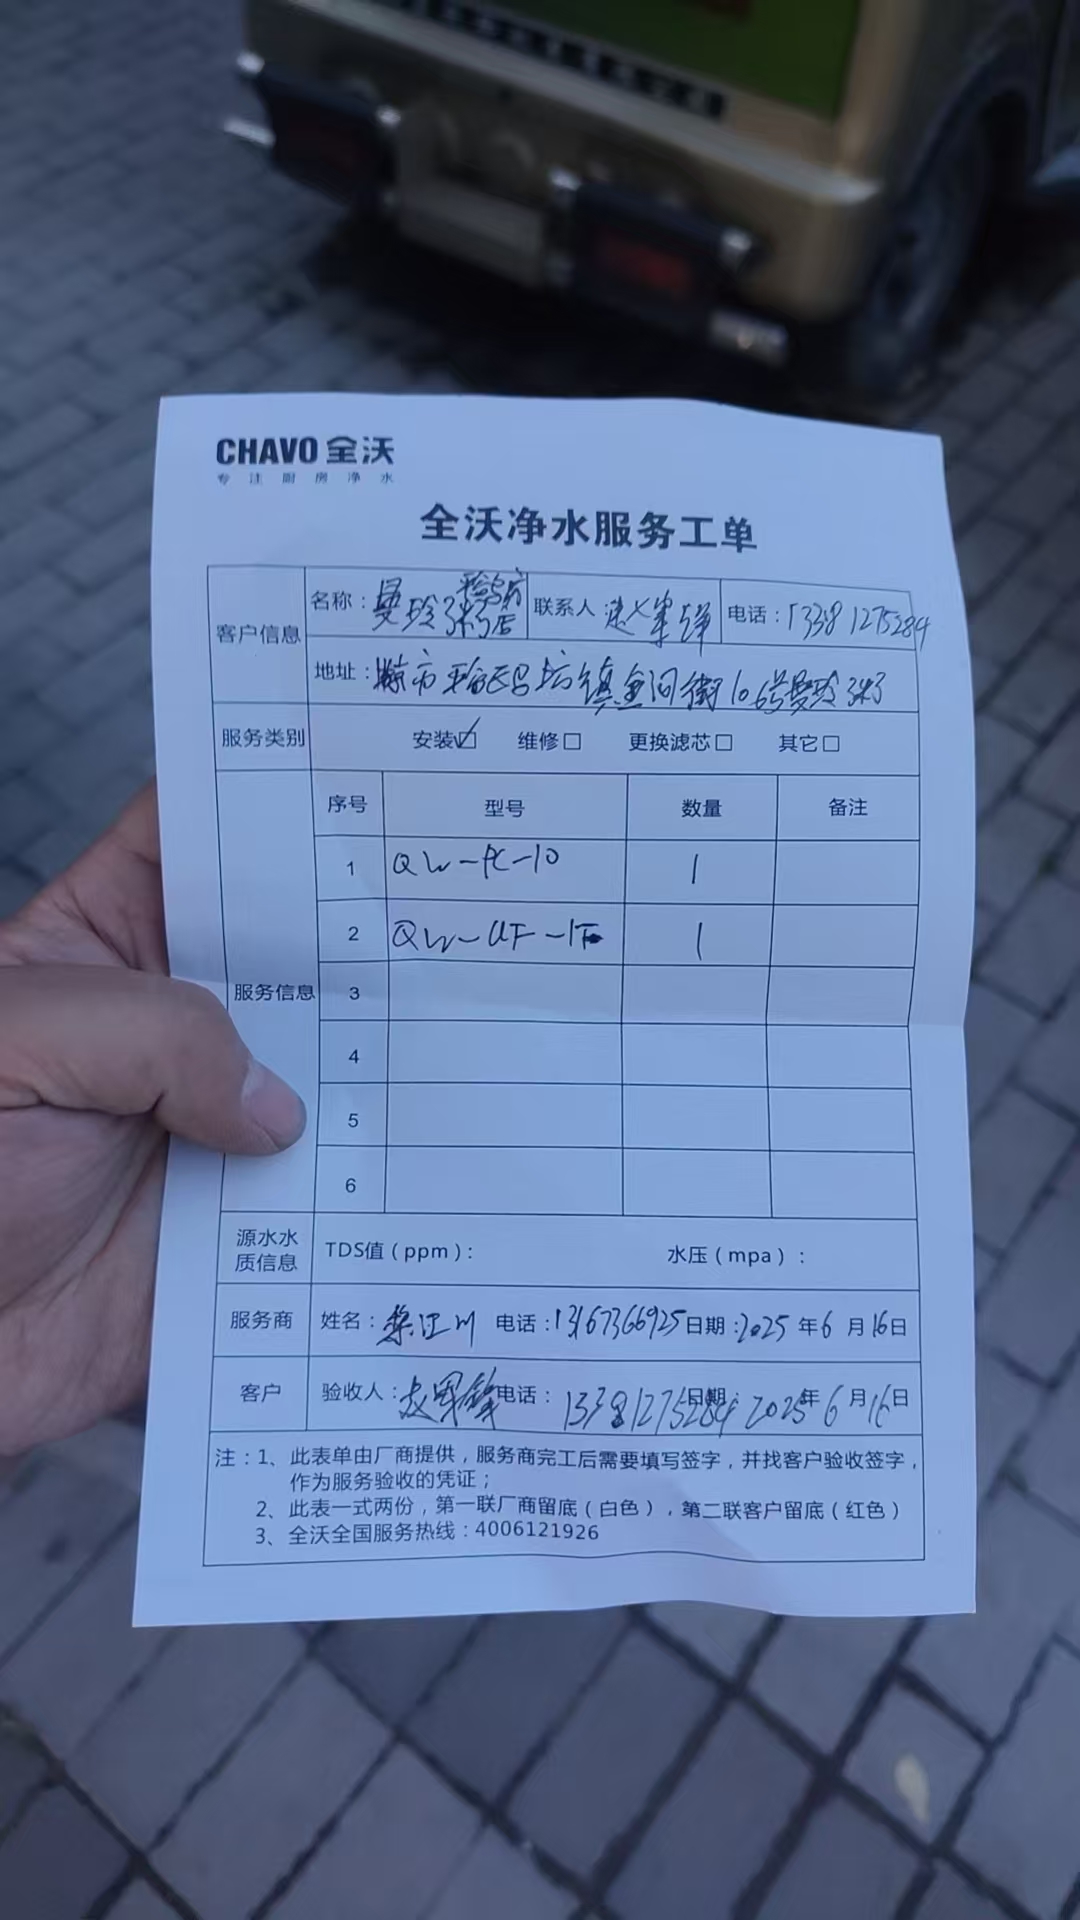 CHAVO 全沃
专注厨房净水
全沃净水服务工单
客户信息
名称：曼玲粥店
联系人：赵军锋
电话：13381275284
地址：市 镇 街106号曼玲粥
服务类别
安装☑ 维修□ 更换滤芯□ 其它□
服务信息
序号 型号 数量 备注
1 QW-PC-10 1
2 QW-UF-1T 1
3
4
5
6
源水水质信息
TDS值（ppm）： 水压（mpa）：
服务商
姓名： 江川 电话：13167366925 日期：2025年6月16日
客户
验收人：赵军锋 电话：13381275284 日期：2025年6月16日
注：1、此表单由厂商提供，服务商完工后需要填写签字，并找客户验收签字，
作为服务验收的凭证；
2、此表一式两份，第一联厂商留底（白色），第二联客户留底（红色）
3、全沃全国服务热线：4006121926